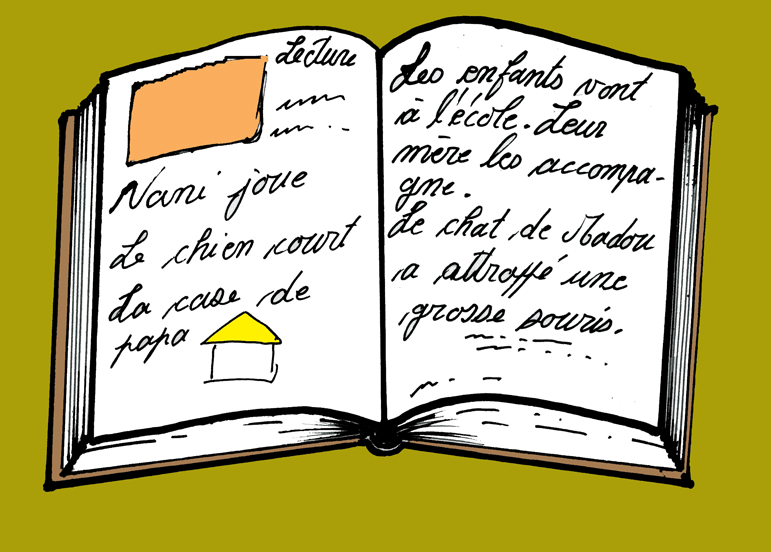 Lecture
Nani joue
Le chien court
La case de
papa
Les enfants vont
à l'école. Leur
mère les accompa-
gne.
Le chat de Madou
a attrappé une
grosse souris.